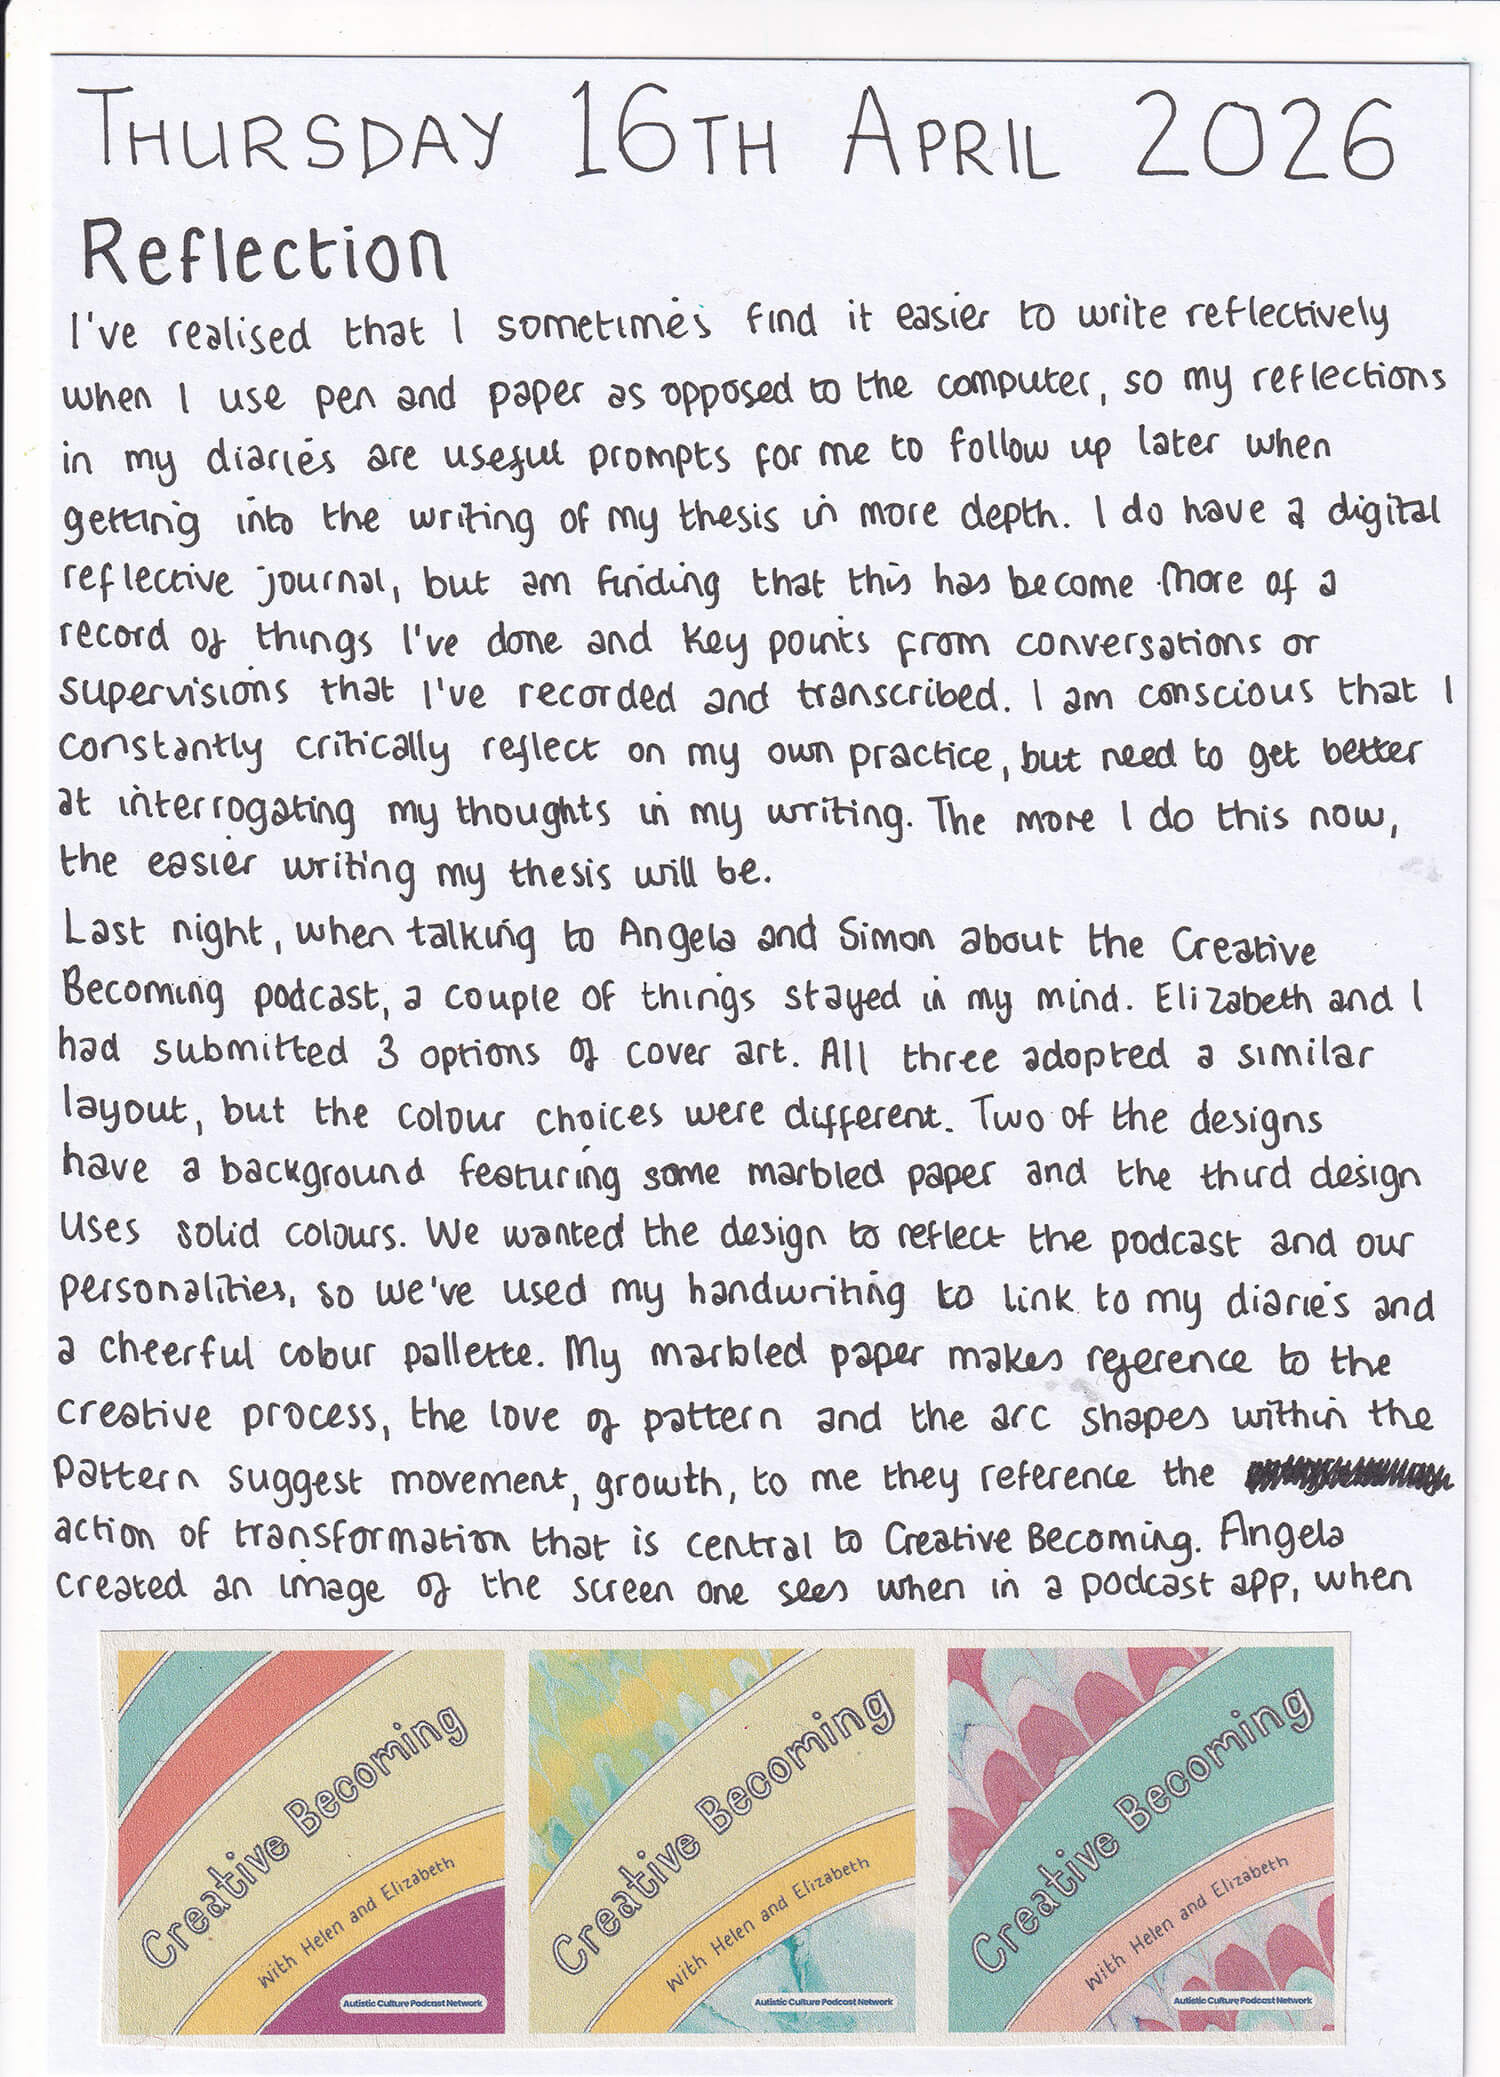 THURSDAY 16TH APRIL 2026
Reflection
I've realised that I sometimes find it easier to write reflectively
when I use pen and paper as opposed to the computer, so my reflections
in my diaries are useful prompts for me to follow up later when
getting into the writing of my thesis in more depth. I do have a digital
reflective journal, but am finding that this has become more of a
record of things I've done and key points from conversations or
supervisions that I've recorded and transcribed. I am conscious that I
constantly critically reflect on my own practice, but need to get better
at interrogating my thoughts in my writing. The more I do this now,
the easier writing my thesis will be.
Last night, when talking to Angela and Simon about the Creative
Becoming podcast, a couple of things stayed in my mind. Elizabeth and I
had submitted 3 options of cover art. All three adopted a similar
layout, but the colour choices were different. Two of the designs
have a background featuring some marbled paper and the third design
uses solid colours. We wanted the design to reflect the podcast and our
personalities, so we've used my handwriting to link to my diaries and
a cheerful colour pallette. My marbled paper makes reference to the
creative process, the love of pattern and the arc shapes within the
pattern suggest movement, growth, to me they reference the
action of transformation that is central to Creative Becoming. Angela
created an image of the screen one sees when in a podcast app, when
Creative Becoming
With Helen and Elizabeth
Autistic Culture Podcast Network
Creative Becoming
With Helen and Elizabeth
Autistic Culture Podcast Network
Creative Becoming
With Helen and Elizabeth
Autistic Culture Podcast Network